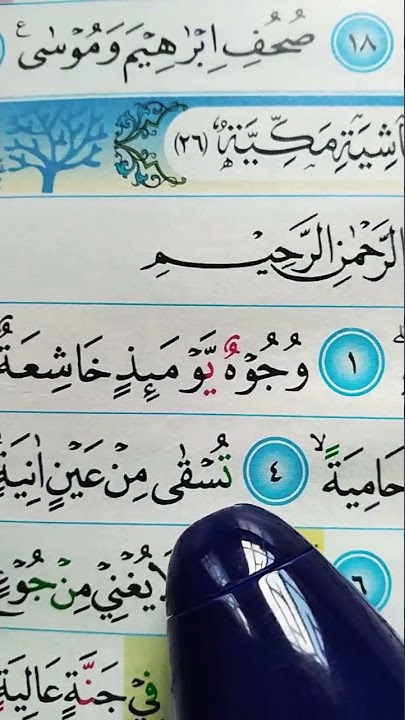 ١٨ صُحُفِ اِبْرٰهِيْمَ وَمُوْسٰى ع
اشِيَةِ مَكِّيَّةٌ (٢٦)
الرَّحْمٰنِ الرَّحِيْمِ
١ وُجُوْهٌ يَّوْمَئِذٍ خَاشِعَةٌ
حَامِيَةً ۙ ٤ تُسْقٰى مِنْ عَيْنٍ اٰنِيَةٍ
٦ لَا يُغْنِيْ مِنْ جُوْعٍ
فِيْ جَنَّةٍ عَالِيَةٍ